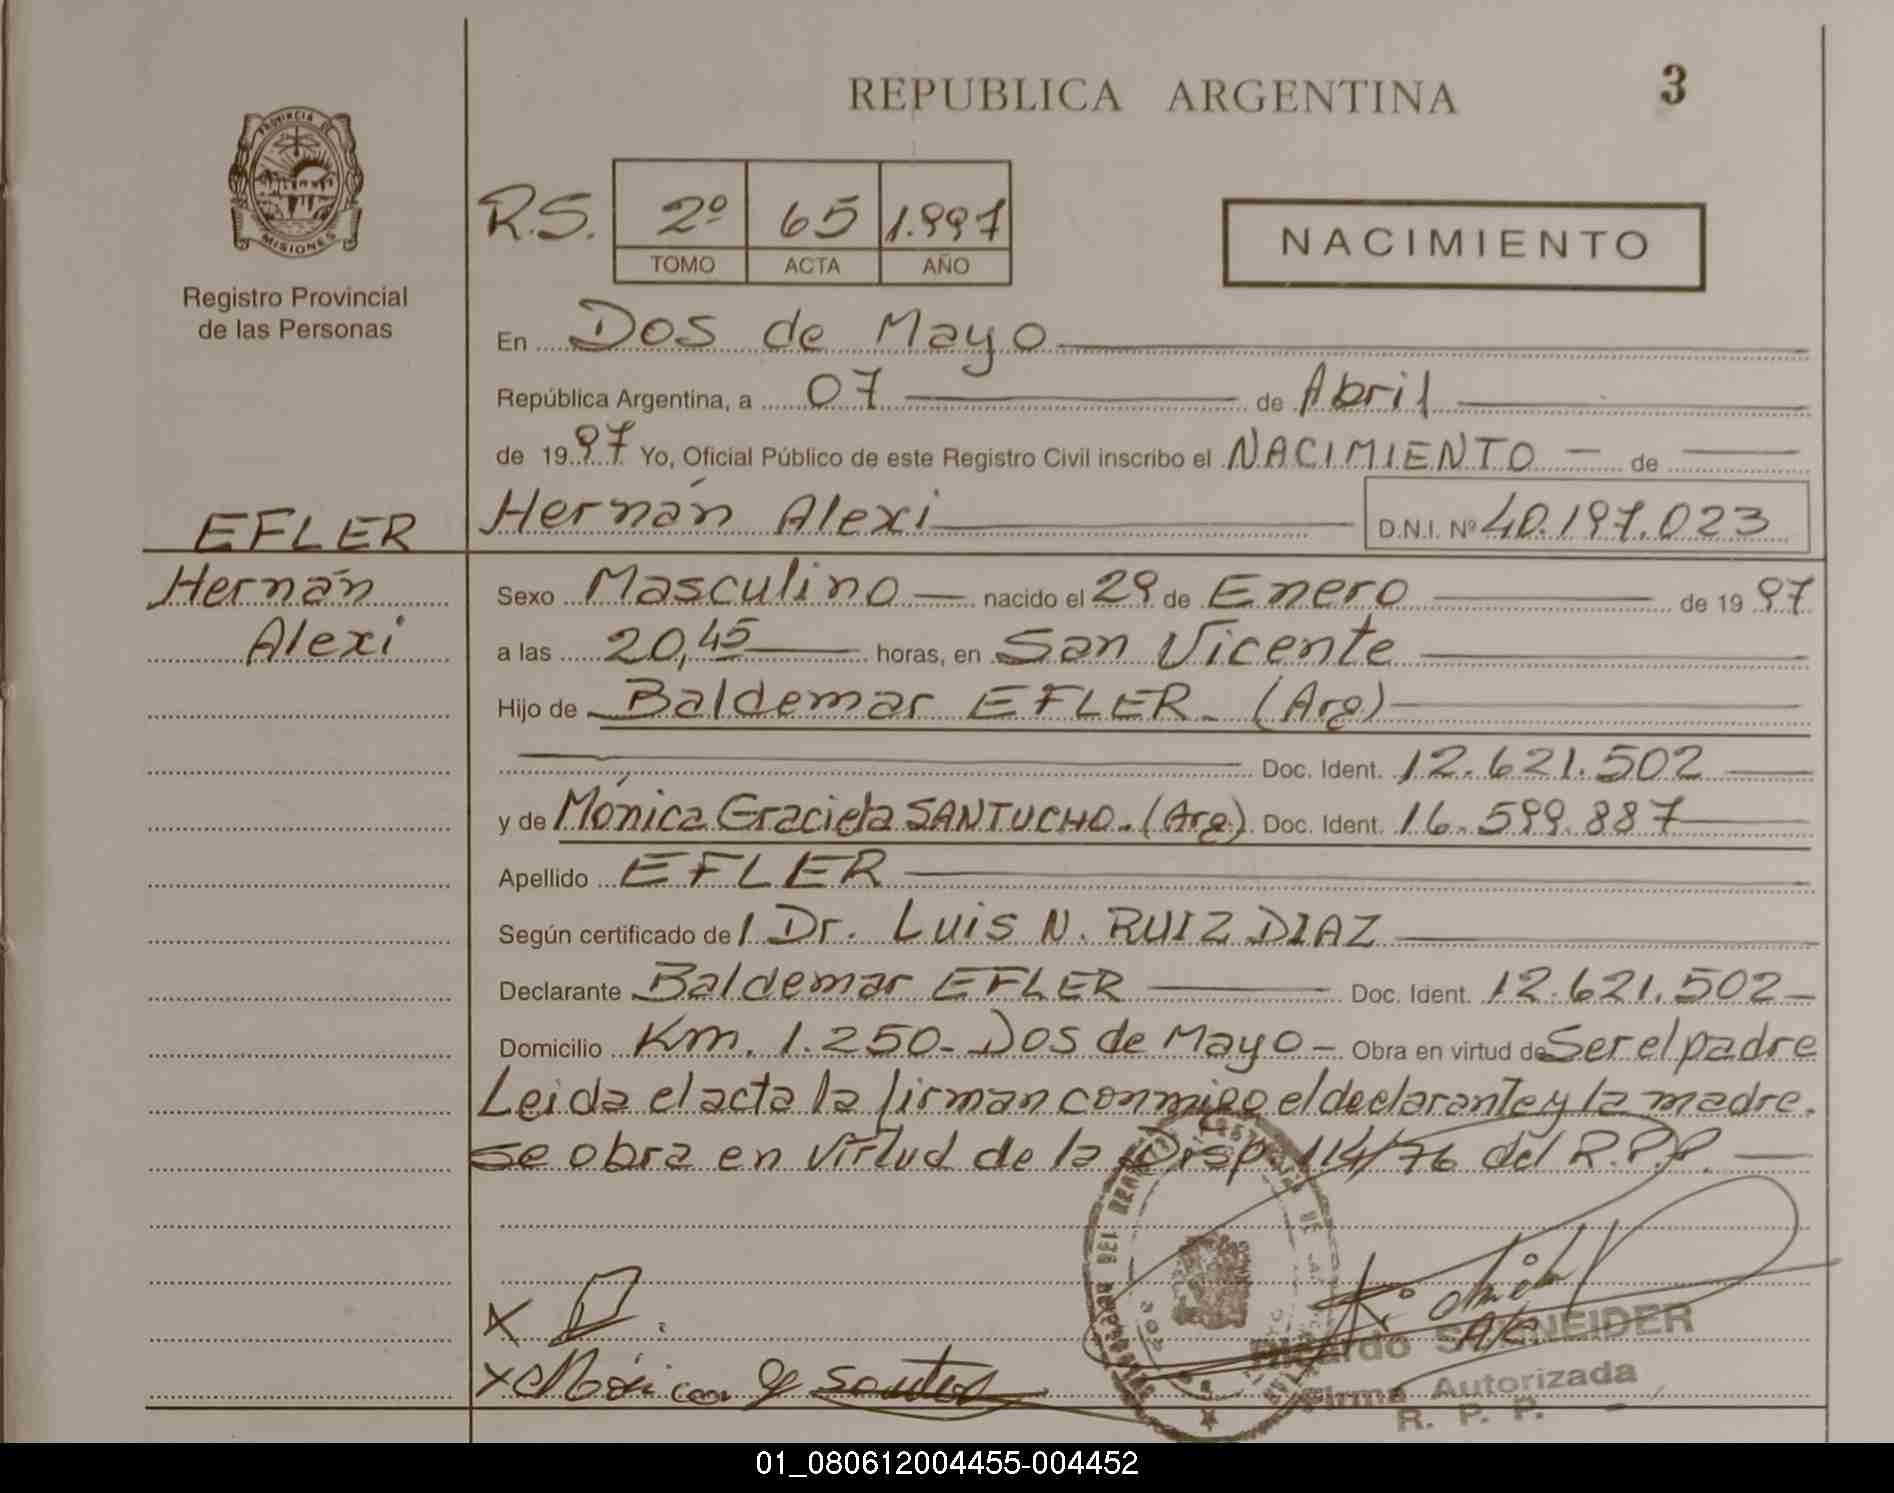 REPUBLICA ARGENTINA
3
PROVINCIA DE
MISIONES
Registro Provincial
de las Personas
R.S.
2º 65 1.997
TOMO ACTA AÑO
NACIMIENTO
En Dos de Mayo
República Argentina, a 07 de Abril
de 1997 Yo, Oficial Público de este Registro Civil inscribo el NACIMIENTO de
Hernán Alexi D.N.I. Nº 40.197.023
EFLER
Hernán
Alexi
Sexo Masculino nacido el 29 de Enero de 1997
a las 20,45 horas, en San Vicente
Hijo de Baldemar EFLER. (Arg)
Doc. Ident. 12.621.502
y de Mónica Graciela SANTUCHO. (Arg). Doc. Ident. 16.599.887
Apellido EFLER
Según certificado de/ Dr. Luis N. RUIZ DIAZ
Declarante Baldemar EFLER Doc. Ident. 12.621.502
Domicilio Km. 1.250- Dos de Mayo - Obra en virtud de Ser el padre
Leida el acta la firman conmigo el declarante y la madre.
se obra en virtud de la Disp. 114/76 del R.P.P.
X
X Mónica G
Ricardo SCHNEIDER
Firma Autorizada
R. P. P.
01_080612004455-004452